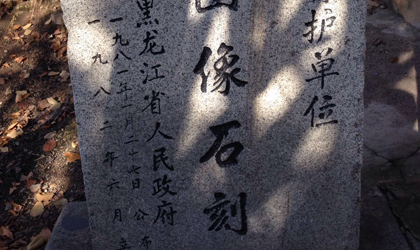 护单位
像石刻
黑龙江省人民政府
一九八一年一月二十七日公布
一九八二年六月立